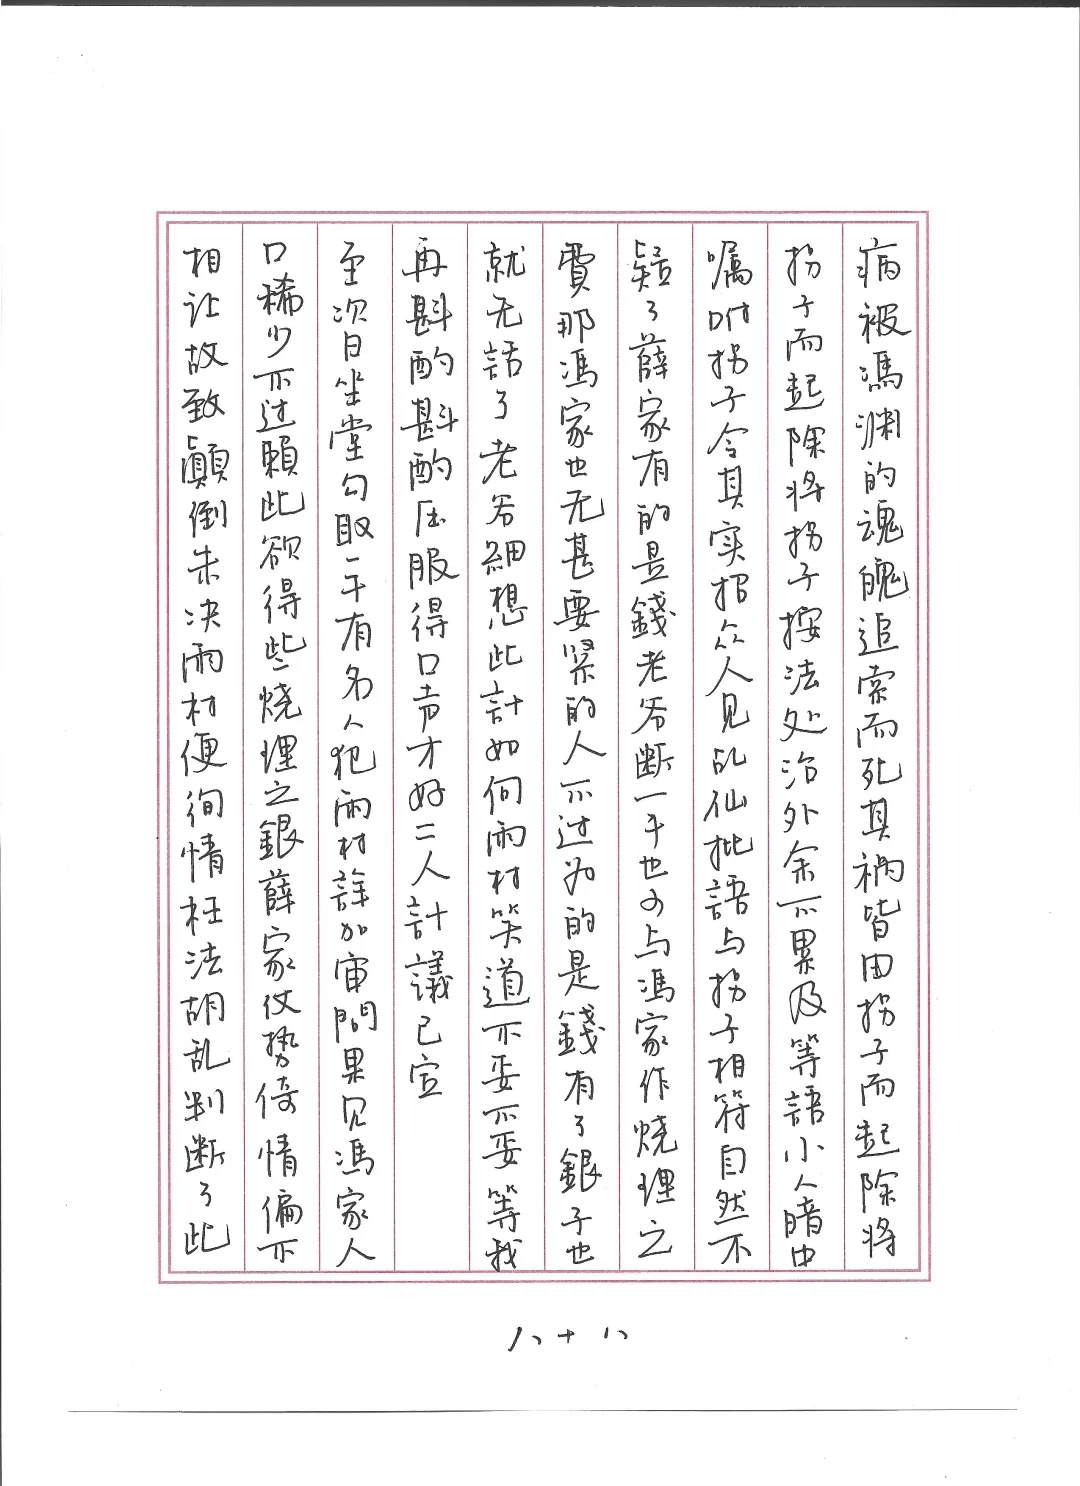 病被馮渊的魂魄追索而死其祸皆由拐子而起除将
拐子而起除将拐子按法处治外余不累及等語小人暗中
嘱咐拐子令其实招众人见乩仙批語与拐子相符自然不
疑了薛家有的是錢老爷断一千也可与馮家作烧埋之
費那馮家也无甚要紧的人不过为的是錢有了銀子也
就无話了老爷細想此計如何雨村笑道不妥不妥等我
再斟酌斟酌压服得口声才好二人計議已定
至次日坐堂勾取一干有名人犯雨村詳加审問果见馮家人
口稀少不过賴此欲得些烧埋之銀薛家仗势倚情偏不
相让故致顛倒未决雨村便徇情枉法胡乱判断了此
八十八